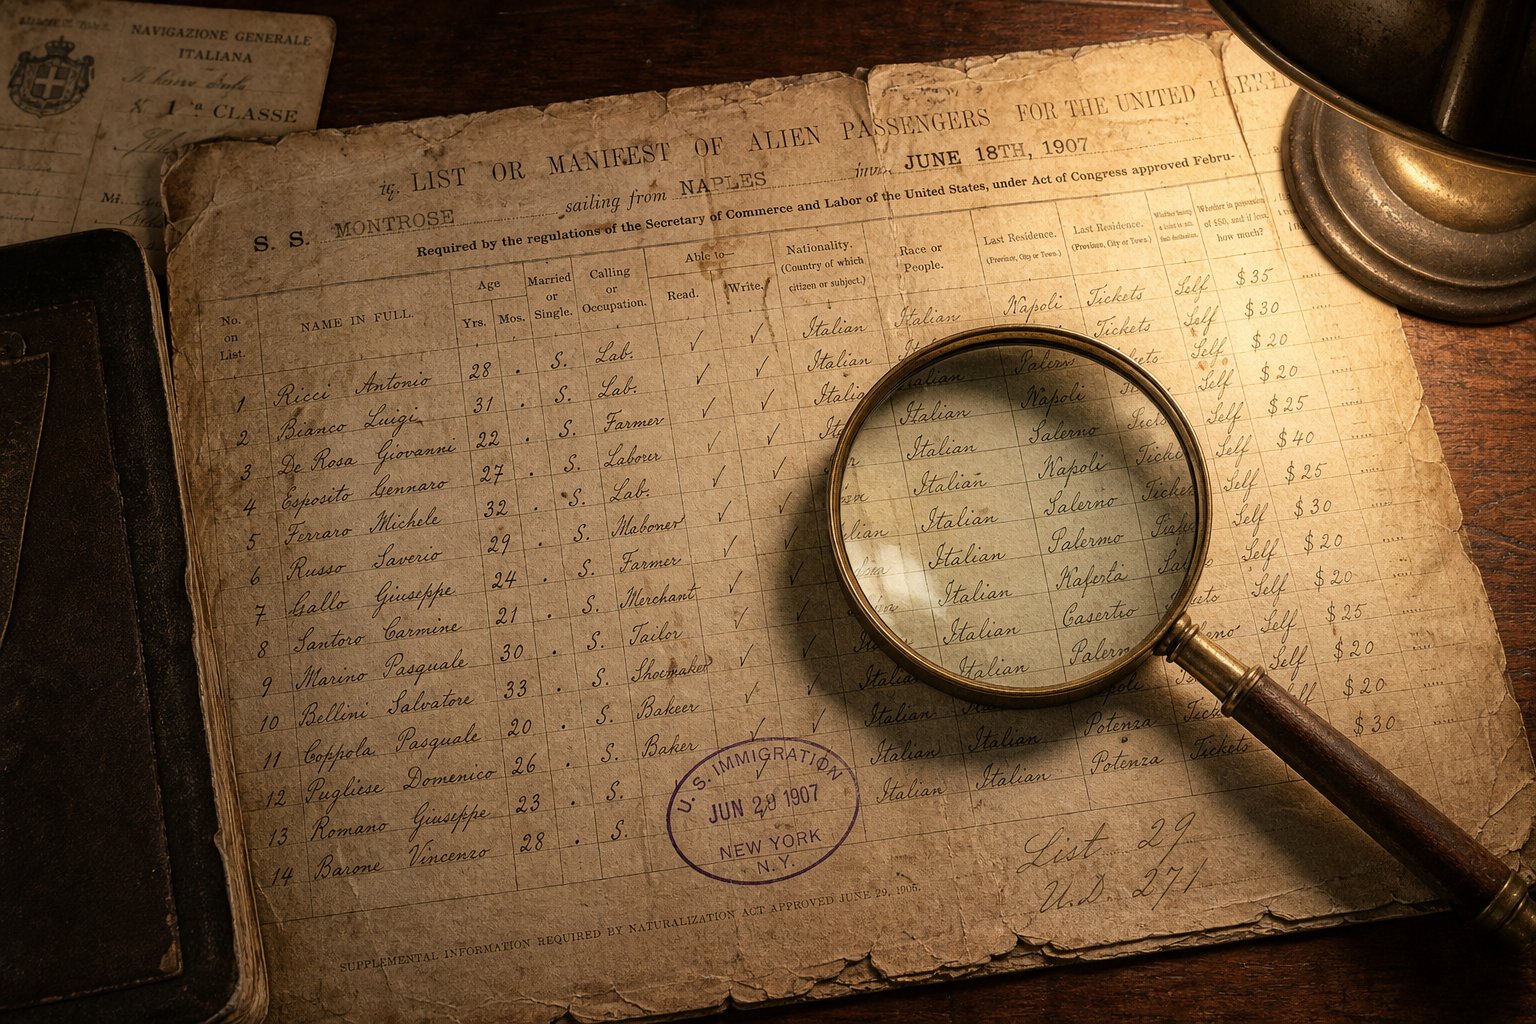 NAVIGAZIONE GENERALE
ITALIANA
1ª CLASSE
LIST OR MANIFEST OF ALIEN PASSENGERS FOR THE UNITED
S. S. MONTROSE sailing from NAPLES JUNE 18TH, 1907
Required by the regulations of the Secretary of Commerce and Labor of the United States, under Act of Congress approved Febru-
No. on List.
NAME IN FULL.
Age
Yrs. Mos.
Married or Single.
Calling or Occupation.
Able to—
Read. Write.
Nationality.
(Country of which citizen or subject.)
Race or People.
Last Residence.
(Province, City or Town.)
Last Residence.
(Province, City or Town.)
Whether in possession of $50, and if less, how much?
1 Ricci Antonio 28 . S. Lab. ✓ ✓ Italian Italian Napoli Tickets Self $35
2 Bianco Luigi 31 . S. Lab. ✓ ✓ Italian Tickets Self $30
3 De Rosa Giovanni 22 . S. Farmer ✓ ✓ Italian Napoli Self $20
4 Esposito Gennaro 27 . S. Laborer ✓ ✓ Italian Salerno Self $20
5 Ferraro Michele 32 . S. Lab. ✓ ✓ Italian Napoli Self $25
6 Russo Saverio 29 . S. Maboner ✓ ✓ Italian Salerno Self $40
7 Gallo Giuseppe 24 . S. Farmer ✓ ✓ Italian Palermo Self $25
8 Santoro Carmine 21 . S. Merchant ✓ ✓ Italian Kaferta Self $30
9 Marino Pasquale 30 . S. Tailor ✓ ✓ Italian Casertio Self $20
10 Bellini Salvatore 33 . S. Shoemaker ✓ ✓ Italian Self $20
11 Coppola Pasquale 20 . S. Bakeer ✓ ✓ Italian Self $25
12 Pugliese Domenico 26 . S. Baker ✓ ✓ Italian $20
13 Romano Giuseppe 23 . S. Italian Italian Potenza $20
14 Barone Vincenzo 28 . S. Italian Italian Potenza Tickets $30
U. S. IMMIGRATION
JUN 29 1907
NEW YORK
N. Y.
List 29
U.D. 271
SUPPLEMENTAL INFORMATION REQUIRED BY NATURALIZATION ACT APPROVED JUNE 29, 1906.